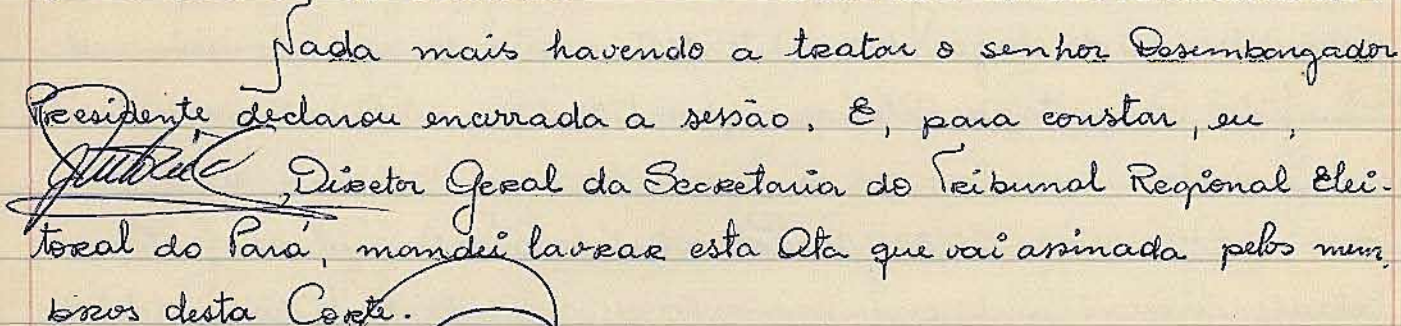 Nada mais havendo a tratar o senhor Desembargador
Presidente declarou encerrada a sessão. E, para constar, eu,
, Diretor Geral da Secretaria do Tribunal Regional Elei-
toral do Pará, mandei lavrar esta Ata que vai assinada pelos mem-
bros desta Corte.